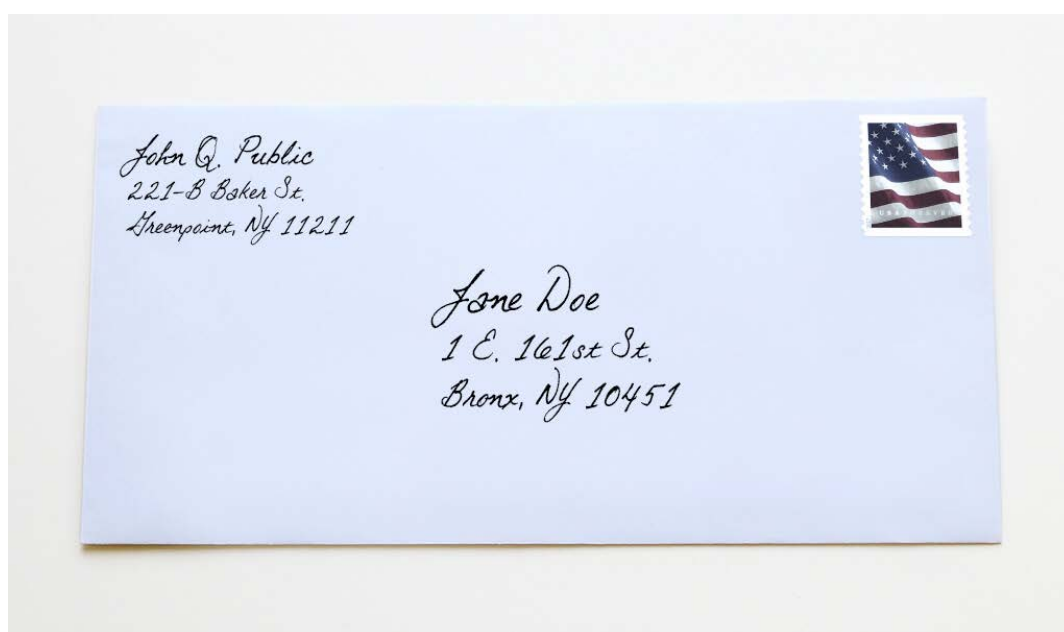 John Q. Public
221-B Baker St.
Greenpoint, NY 11211
USA FOREVER
Jane Doe
1 E. 161st St.
Bronx, NY 10451